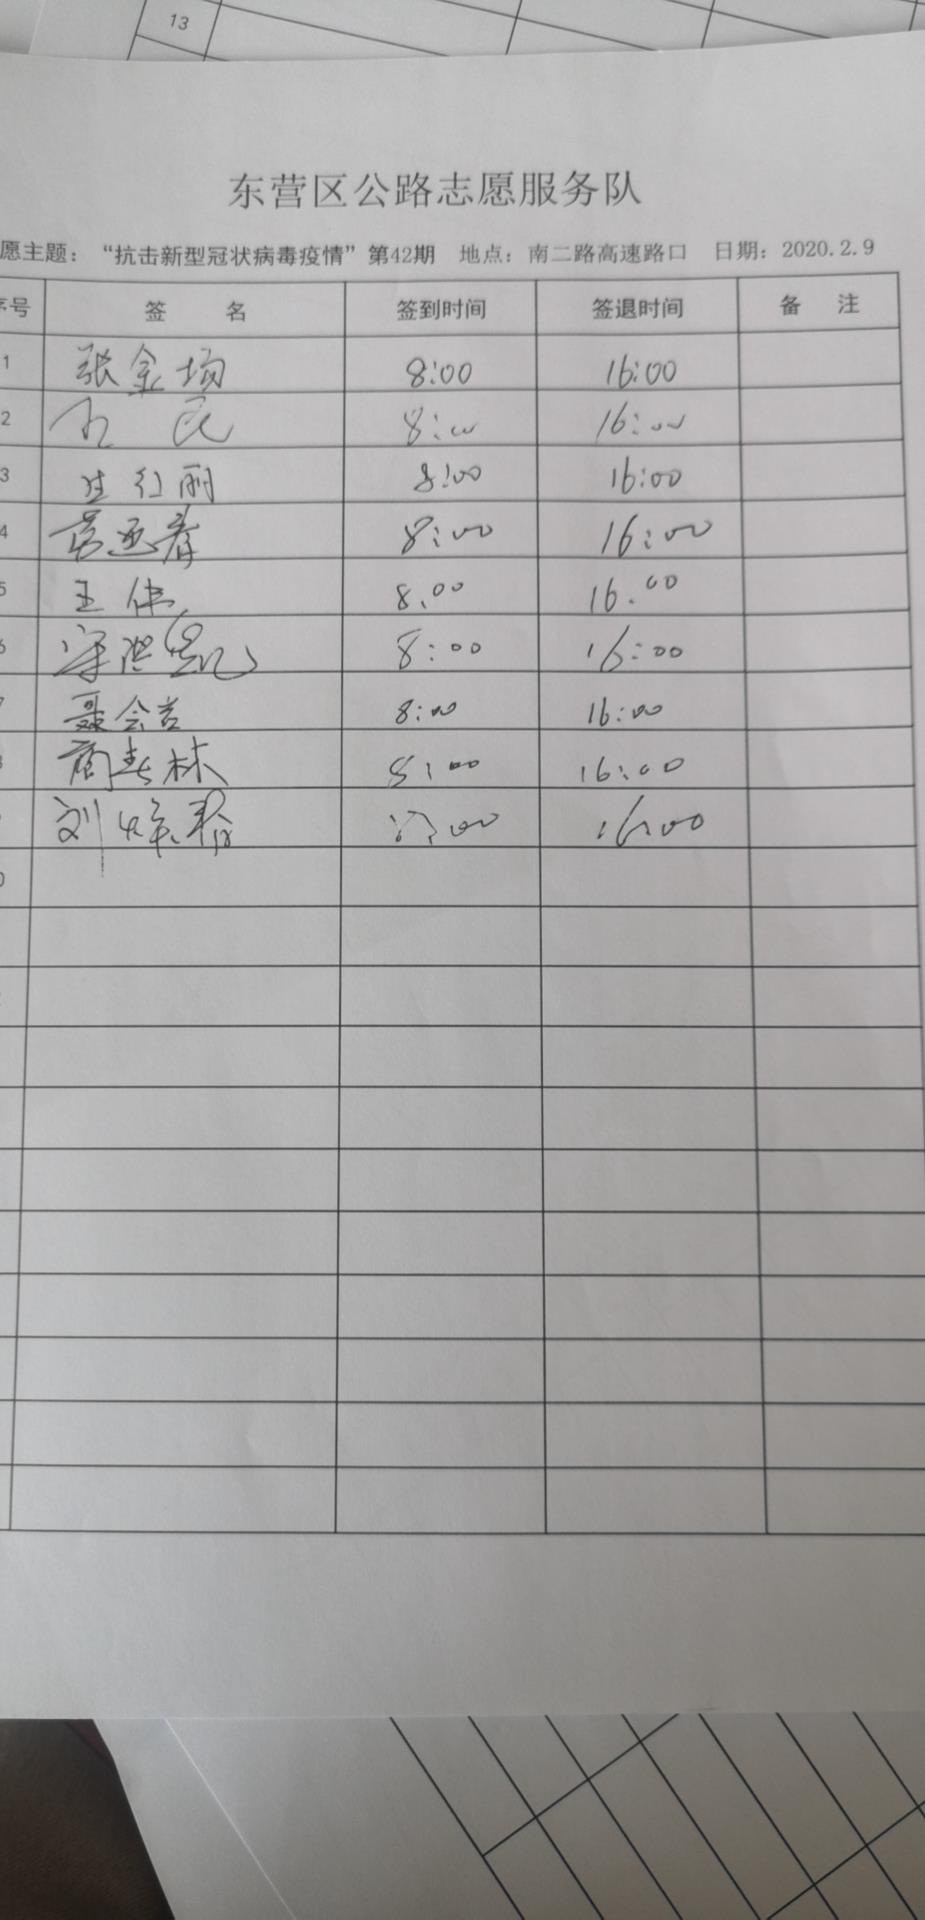 13
东营区公路志愿服务队
愿主题：“抗击新型冠状病毒疫情”第42期 地点：南二路高速路口 日期：2020.2.9
序号 签 名 签到时间 签退时间 备 注
1 张金场 8:00 16:00
2 民 8:00 16:00
3 红丽 8:00 16:00
4 8:00 16:00
5 王伟 8.00 16.00
6 8:00 16:00
7 聂会吉 8:00 16:00
8 商春林 8:00 16:00
刘 16:00
0